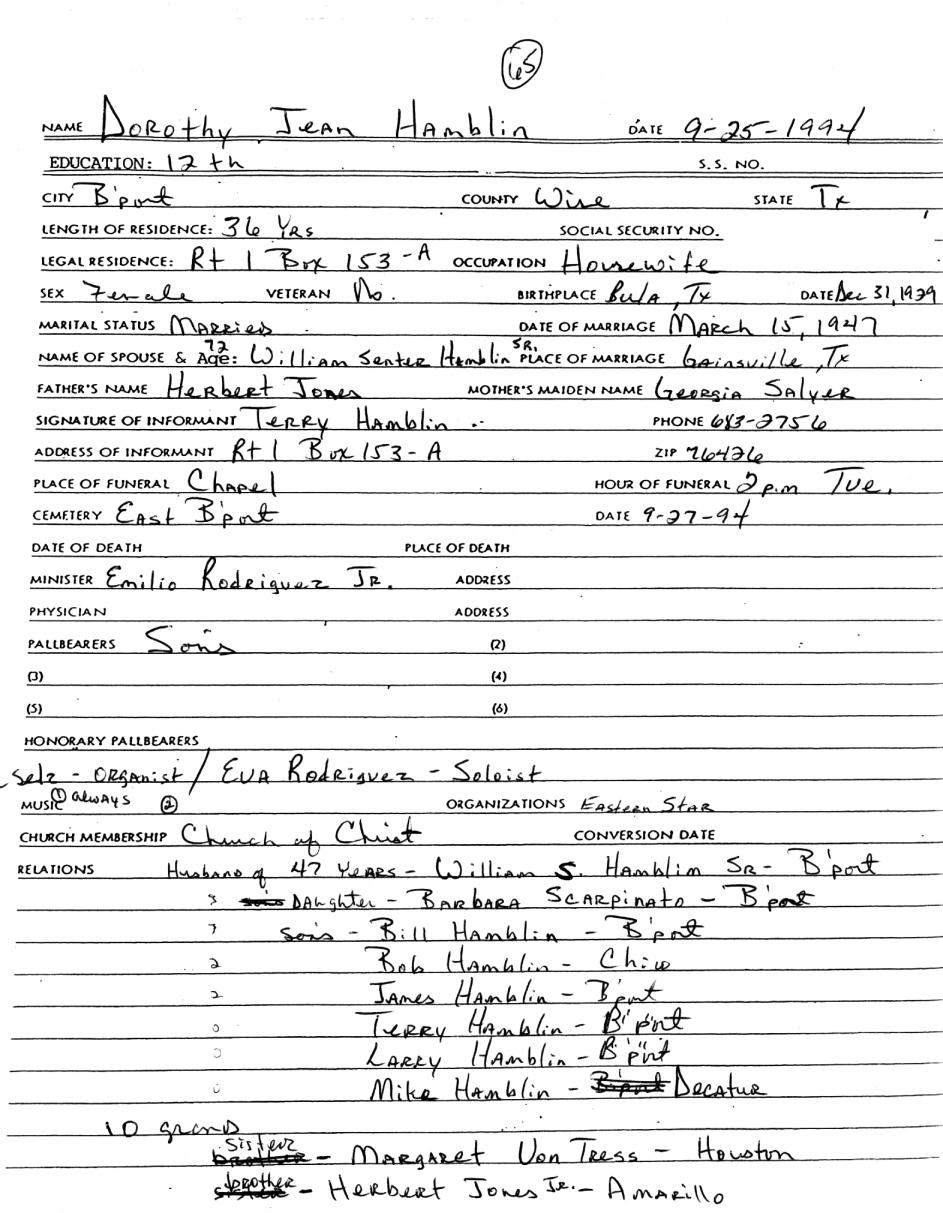 65
NAME Dorothy Jean Hamblin DATE 9-25-1994
EDUCATION: 12th S.S. NO.
CITY B'port COUNTY Wise STATE Tx
LENGTH OF RESIDENCE: 36 Yrs SOCIAL SECURITY NO.
LEGAL RESIDENCE: Rt 1 Box 153-A OCCUPATION Housewife
SEX Female VETERAN No. BIRTHPLACE Bula, Tx DATE Dec 31, 1929
MARITAL STATUS Married DATE OF MARRIAGE March 15, 1947
NAME OF SPOUSE & Age: 72 William Senter Hamblin SR. PLACE OF MARRIAGE Gainsville, Tx
FATHER'S NAME Herbert Jones MOTHER'S MAIDEN NAME Georgia Salyer
SIGNATURE OF INFORMANT Terry Hamblin PHONE 683-2756
ADDRESS OF INFORMANT Rt 1 Box 153-A ZIP 76426
PLACE OF FUNERAL Chapel HOUR OF FUNERAL 2 p.m Tue.
CEMETERY East B'port DATE 9-27-94
DATE OF DEATH PLACE OF DEATH
MINISTER Emilio Rodriguez Jr. ADDRESS
PHYSICIAN ADDRESS
PALLBEARERS Sons (2)
(3) (4)
(5) (6)
HONORARY PALLBEARERS
Selz - Organist / Eva Rodriguez - Soloist
MUSIC ① always ② ORGANIZATIONS Eastern Star
CHURCH MEMBERSHIP Church of Christ CONVERSION DATE
RELATIONS Husband of 47 Years - William S. Hamblin Sr - B'port
3 sons Daughter - Barbara Scarpinato - B'port
3 Sons - Bill Hamblin - B'port
2 Bob Hamblin - Chico
2 James Hamblin - B'port
0 Terry Hamblin - B'port
0 Larry Hamblin - B'port
0 Mike Hamblin - B'port Decatur
10 grands
brother sister - Margaret Von Tress - Houston
sister brother - Herbert Jones Jr. - Amarillo